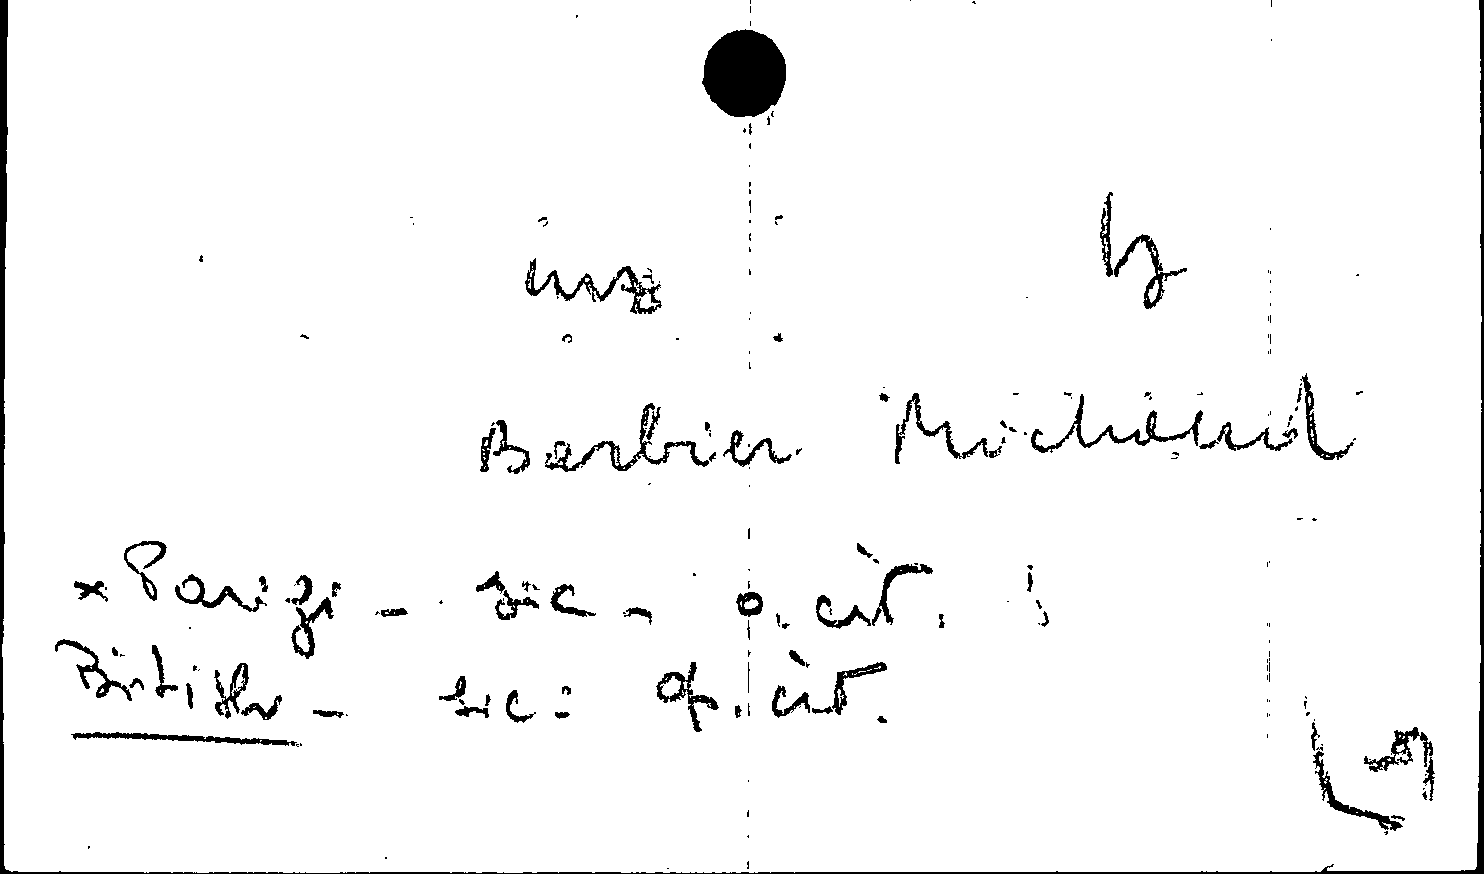 Barbier Michaud
x Parigi - sic - o. cit. ;
British - sic: op. cit.